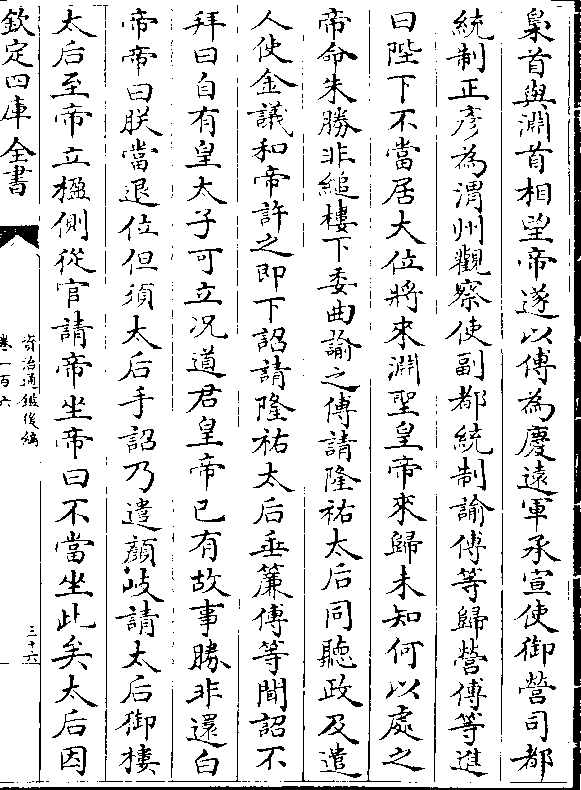 梟首與淵首相望帝遂以傅為慶遠軍承宣使御營司都
統制正彦為渭州觀察使副都統制諭傅等歸營傅等進
曰陛下不當居大位將來淵聖皇帝來歸未知何以處之
帝命朱勝非縋樓下委曲諭之傅請隆祐太后同聽政及遣
人使金議和帝許之即下詔請隆祐太后垂簾傅等聞詔不
拜曰自有皇太子可立况道君皇帝已有故事勝非還白
帝帝曰朕當退位但須太后手詔乃遣顔岐請太后御樓
太后至帝立楹側從官請帝坐帝曰不當坐此矣太后因
欽定四庫全書
資治通鑑後編
卷一百六
三十六